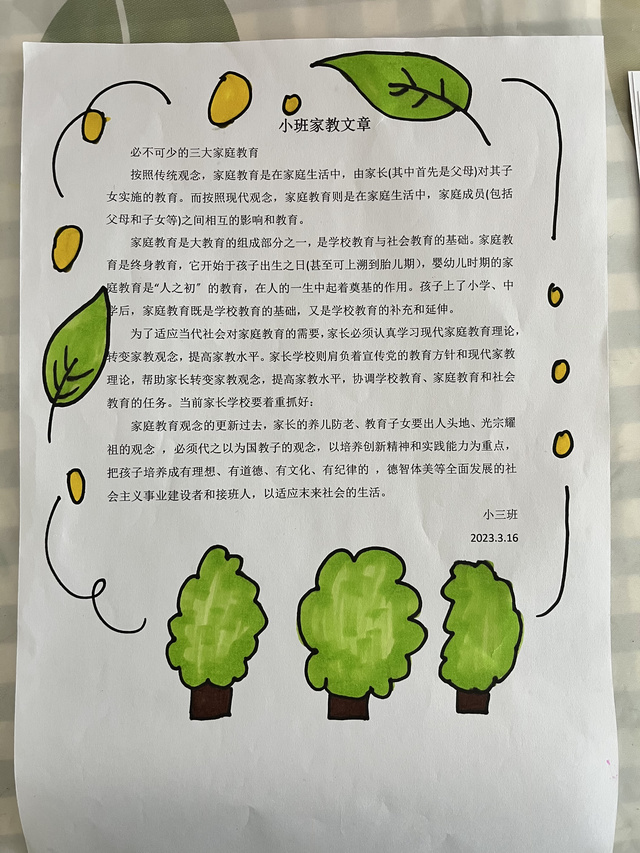 小班家教文章
必不可少的三大家庭教育
按照传统观念，家庭教育是在家庭生活中，由家长(其中首先是父母)对其子
女实施的教育。而按照现代观念，家庭教育则是在家庭生活中，家庭成员(包括
父母和子女等)之间相互的影响和教育。
家庭教育是大教育的组成部分之一，是学校教育与社会教育的基础。家庭教
育是终身教育，它开始于孩子出生之日(甚至可上溯到胎儿期)，婴幼儿时期的家
庭教育是“人之初”的教育，在人的一生中起着奠基的作用。孩子上了小学、中
学后，家庭教育既是学校教育的基础，又是学校教育的补充和延伸。
为了适应当代社会对家庭教育的需要，家长必须认真学习现代家庭教育理论，
转变家教观念，提高家教水平。家长学校则肩负着宣传党的教育方针和现代家教
理论，帮助家长转变家教观念，提高家教水平，协调学校教育、家庭教育和社会
教育的任务。当前家长学校要着重抓好：
家庭教育观念的更新过去，家长的养儿防老、教育子女要出人头地、光宗耀
祖的观念 ，必须代之以为国教子的观念，以培养创新精神和实践能力为重点，
把孩子培养成有理想、有道德、有文化、有纪律的 ，德智体美等全面发展的社
会主义事业建设者和接班人，以适应末来社会的生活。
小三班
2023.3.16